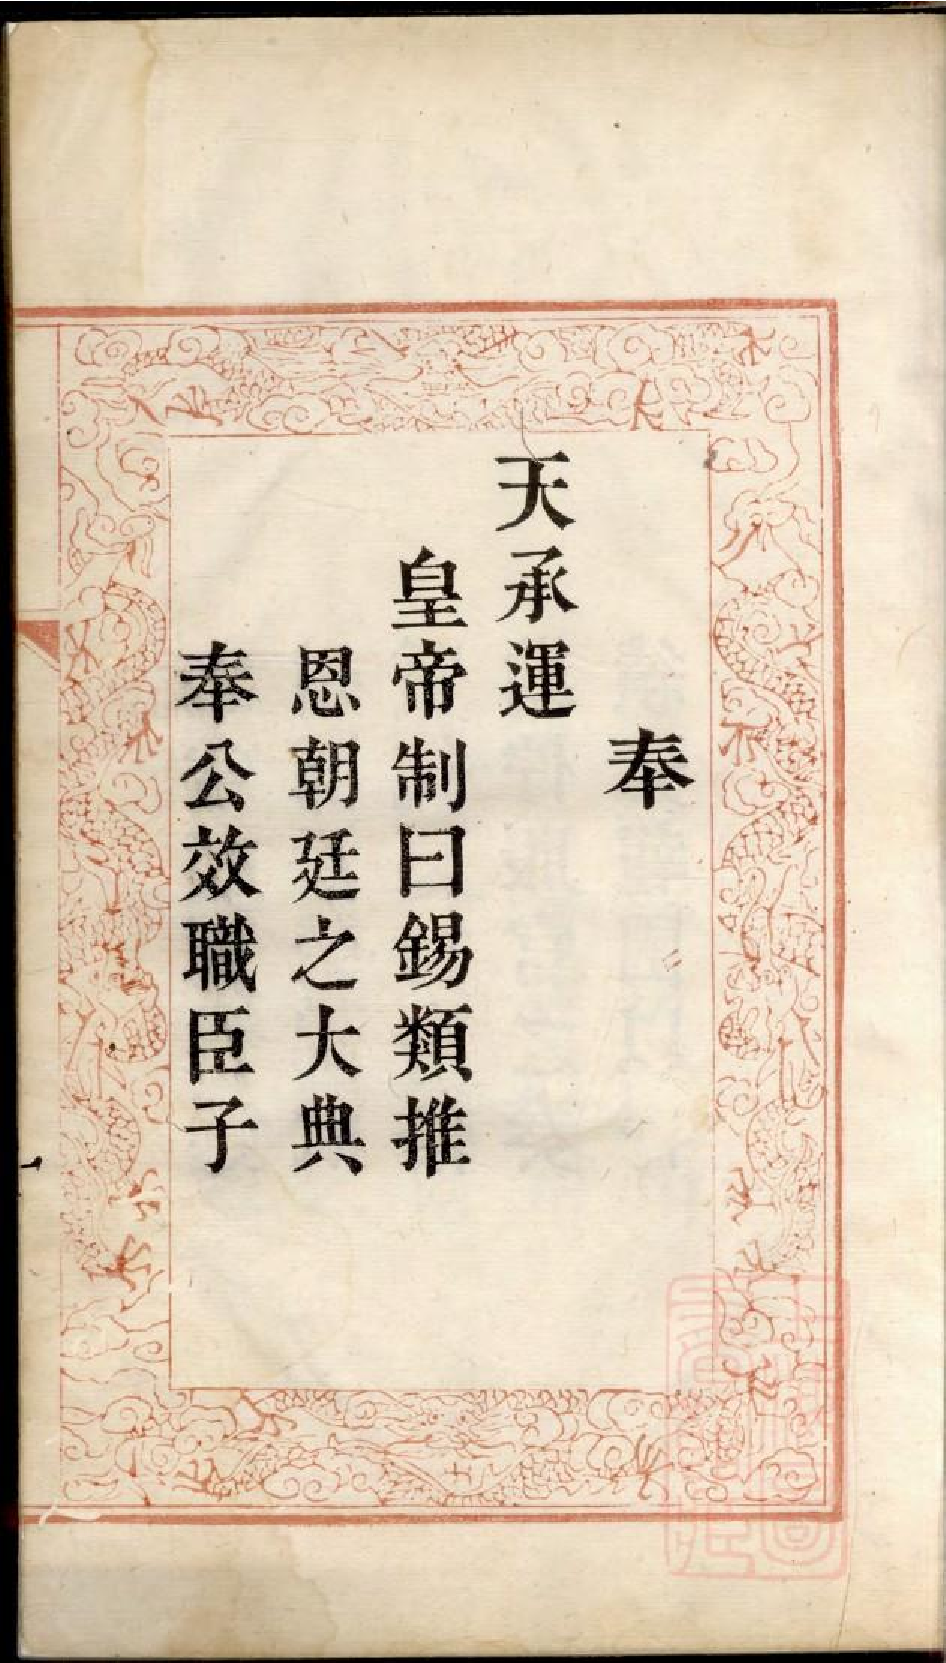 奉
天承運
皇帝制曰錫類推
恩朝廷之大典
奉公效職臣子